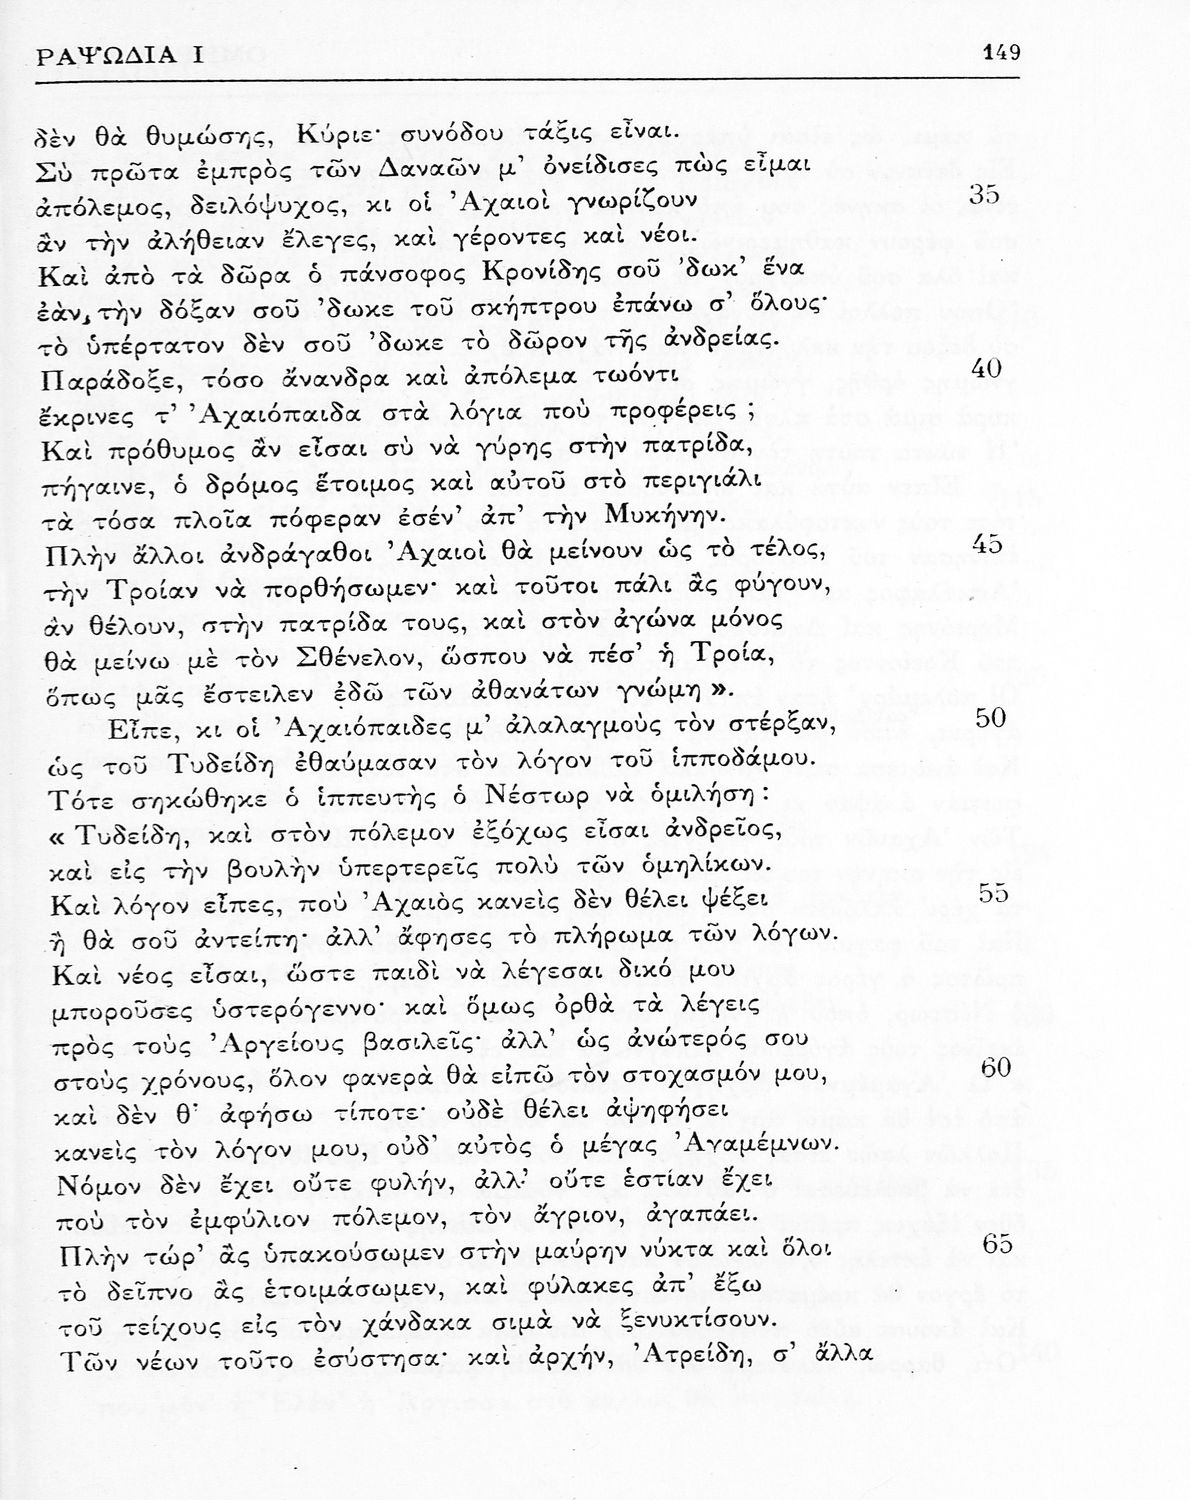 ΡΑΨΩΔΙΑ Ι 149
δὲν θὰ θυμώσης, Κύριε· συνόδου τάξις εἶναι.
Σὺ πρῶτα ἐμπρὸς τῶν Δαναῶν μ’ ὀνείδισες πὼς εἶμαι
ἀπόλεμος, δειλόψυχος, κι οἱ ’Αχαιοὶ γνωρίζουν 35
ἂν τὴν ἀλήθειαν ἔλεγες, καὶ γέροντες καὶ νέοι.
Καὶ ἀπὸ τὰ δῶρα ὁ πάνσοφος Κρονίδης σοῦ ’δωκ’ ἕνα
ἐὰν, τὴν δόξαν σοῦ ’δωκε τοῦ σκήπτρου ἐπάνω σ’ ὅλους·
τὸ ὑπέρτατον δὲν σοῦ ’δωκε τὸ δῶρον τῆς ἀνδρείας.
Παράδοξε, τόσο ἄνανδρα καὶ ἀπόλεμα τωόντι 40
ἔκρινες τ’ ’Αχαιόπαιδα στὰ λόγια ποὺ προφέρεις ;
Καὶ πρόθυμος ἂν εἶσαι σὺ νὰ γύρης στὴν πατρίδα,
πήγαινε, ὁ δρόμος ἕτοιμος καὶ αὐτοῦ στὸ περιγιάλι
τὰ τόσα πλοῖα πόφεραν ἐσέν’ ἀπ’ τὴν Μυκήνην.
Πλὴν ἄλλοι ἀνδράγαθοι ’Αχαιοὶ θὰ μείνουν ὡς τὸ τέλος, 45
τὴν Τροίαν νὰ πορθήσωμεν· καὶ τοῦτοι πάλι ἂς φύγουν,
ἀν θέλουν, στὴν πατρίδα τους, καὶ στὸν ἀγώνα μόνος
θὰ μείνω μὲ τὸν Σθένελον, ὥσπου νὰ πέσ’ ἡ Τροία,
ὅπως μᾶς ἔστειλεν ἐδῶ τῶν ἀθανάτων γνώμη ».
Εἶπε, κι οἱ ’Αχαιόπαιδες μ’ ἀλαλαγμοὺς τὸν στέρξαν, 50
ὡς τοῦ Τυδείδη ἐθαύμασαν τὸν λόγον τοῦ ἱπποδάμου.
Τότε σηκώθηκε ὁ ἱππευτὴς ὁ Νέστωρ νὰ ὁμιλήση :
« Τυδείδη, καὶ στὸν πόλεμον ἐξόχως εἶσαι ἀνδρεῖος,
καὶ εἰς τὴν βουλὴν ὑπερτερεῖς πολὺ τῶν ὁμηλίκων.
Καὶ λόγον εἶπες, ποὺ ’Αχαιὸς κανεὶς δὲν θέλει ψέξει 55
ἢ θὰ σοῦ ἀντείπη· ἀλλ’ ἄφησες τὸ πλήρωμα τῶν λόγων.
Καὶ νέος εἶσαι, ὥστε παιδὶ νὰ λέγεσαι δικό μου
μποροῦσες ὑστερόγεννο· καὶ ὅμως ὀρθὰ τὰ λέγεις
πρὸς τοὺς ’Αργείους βασιλεῖς· ἀλλ’ ὡς ἀνώτερός σου
στοὺς χρόνους, ὅλον φανερὰ θὰ εἰπῶ τὸν στοχασμόν μου, 60
καὶ δὲν θ’ ἀφήσω τίποτε· οὐδὲ θέλει ἀψηφήσει
κανεὶς τὸν λόγον μου, οὐδ’ αὐτὸς ὁ μέγας ’Αγαμέμνων.
Νόμον δὲν ἔχει οὔτε φυλήν, ἀλλ’ οὔτε ἑστίαν ἔχει
ποὺ τὸν ἐμφύλιον πόλεμον, τὸν ἄγριον, ἀγαπάει.
Πλὴν τώρ’ ἂς ὑπακούσωμεν στὴν μαύρην νύκτα καὶ ὅλοι 65
τὸ δεῖπνο ἂς ἑτοιμάσωμεν, καὶ φύλακες ἀπ’ ἔξω
τοῦ τείχους εἰς τὸν χάνδακα σιμὰ νὰ ξενυκτίσουν.
Τῶν νέων τοῦτο ἐσύστησα· καὶ ἀρχήν, ’Ατρείδη, σ’ ἄλλα